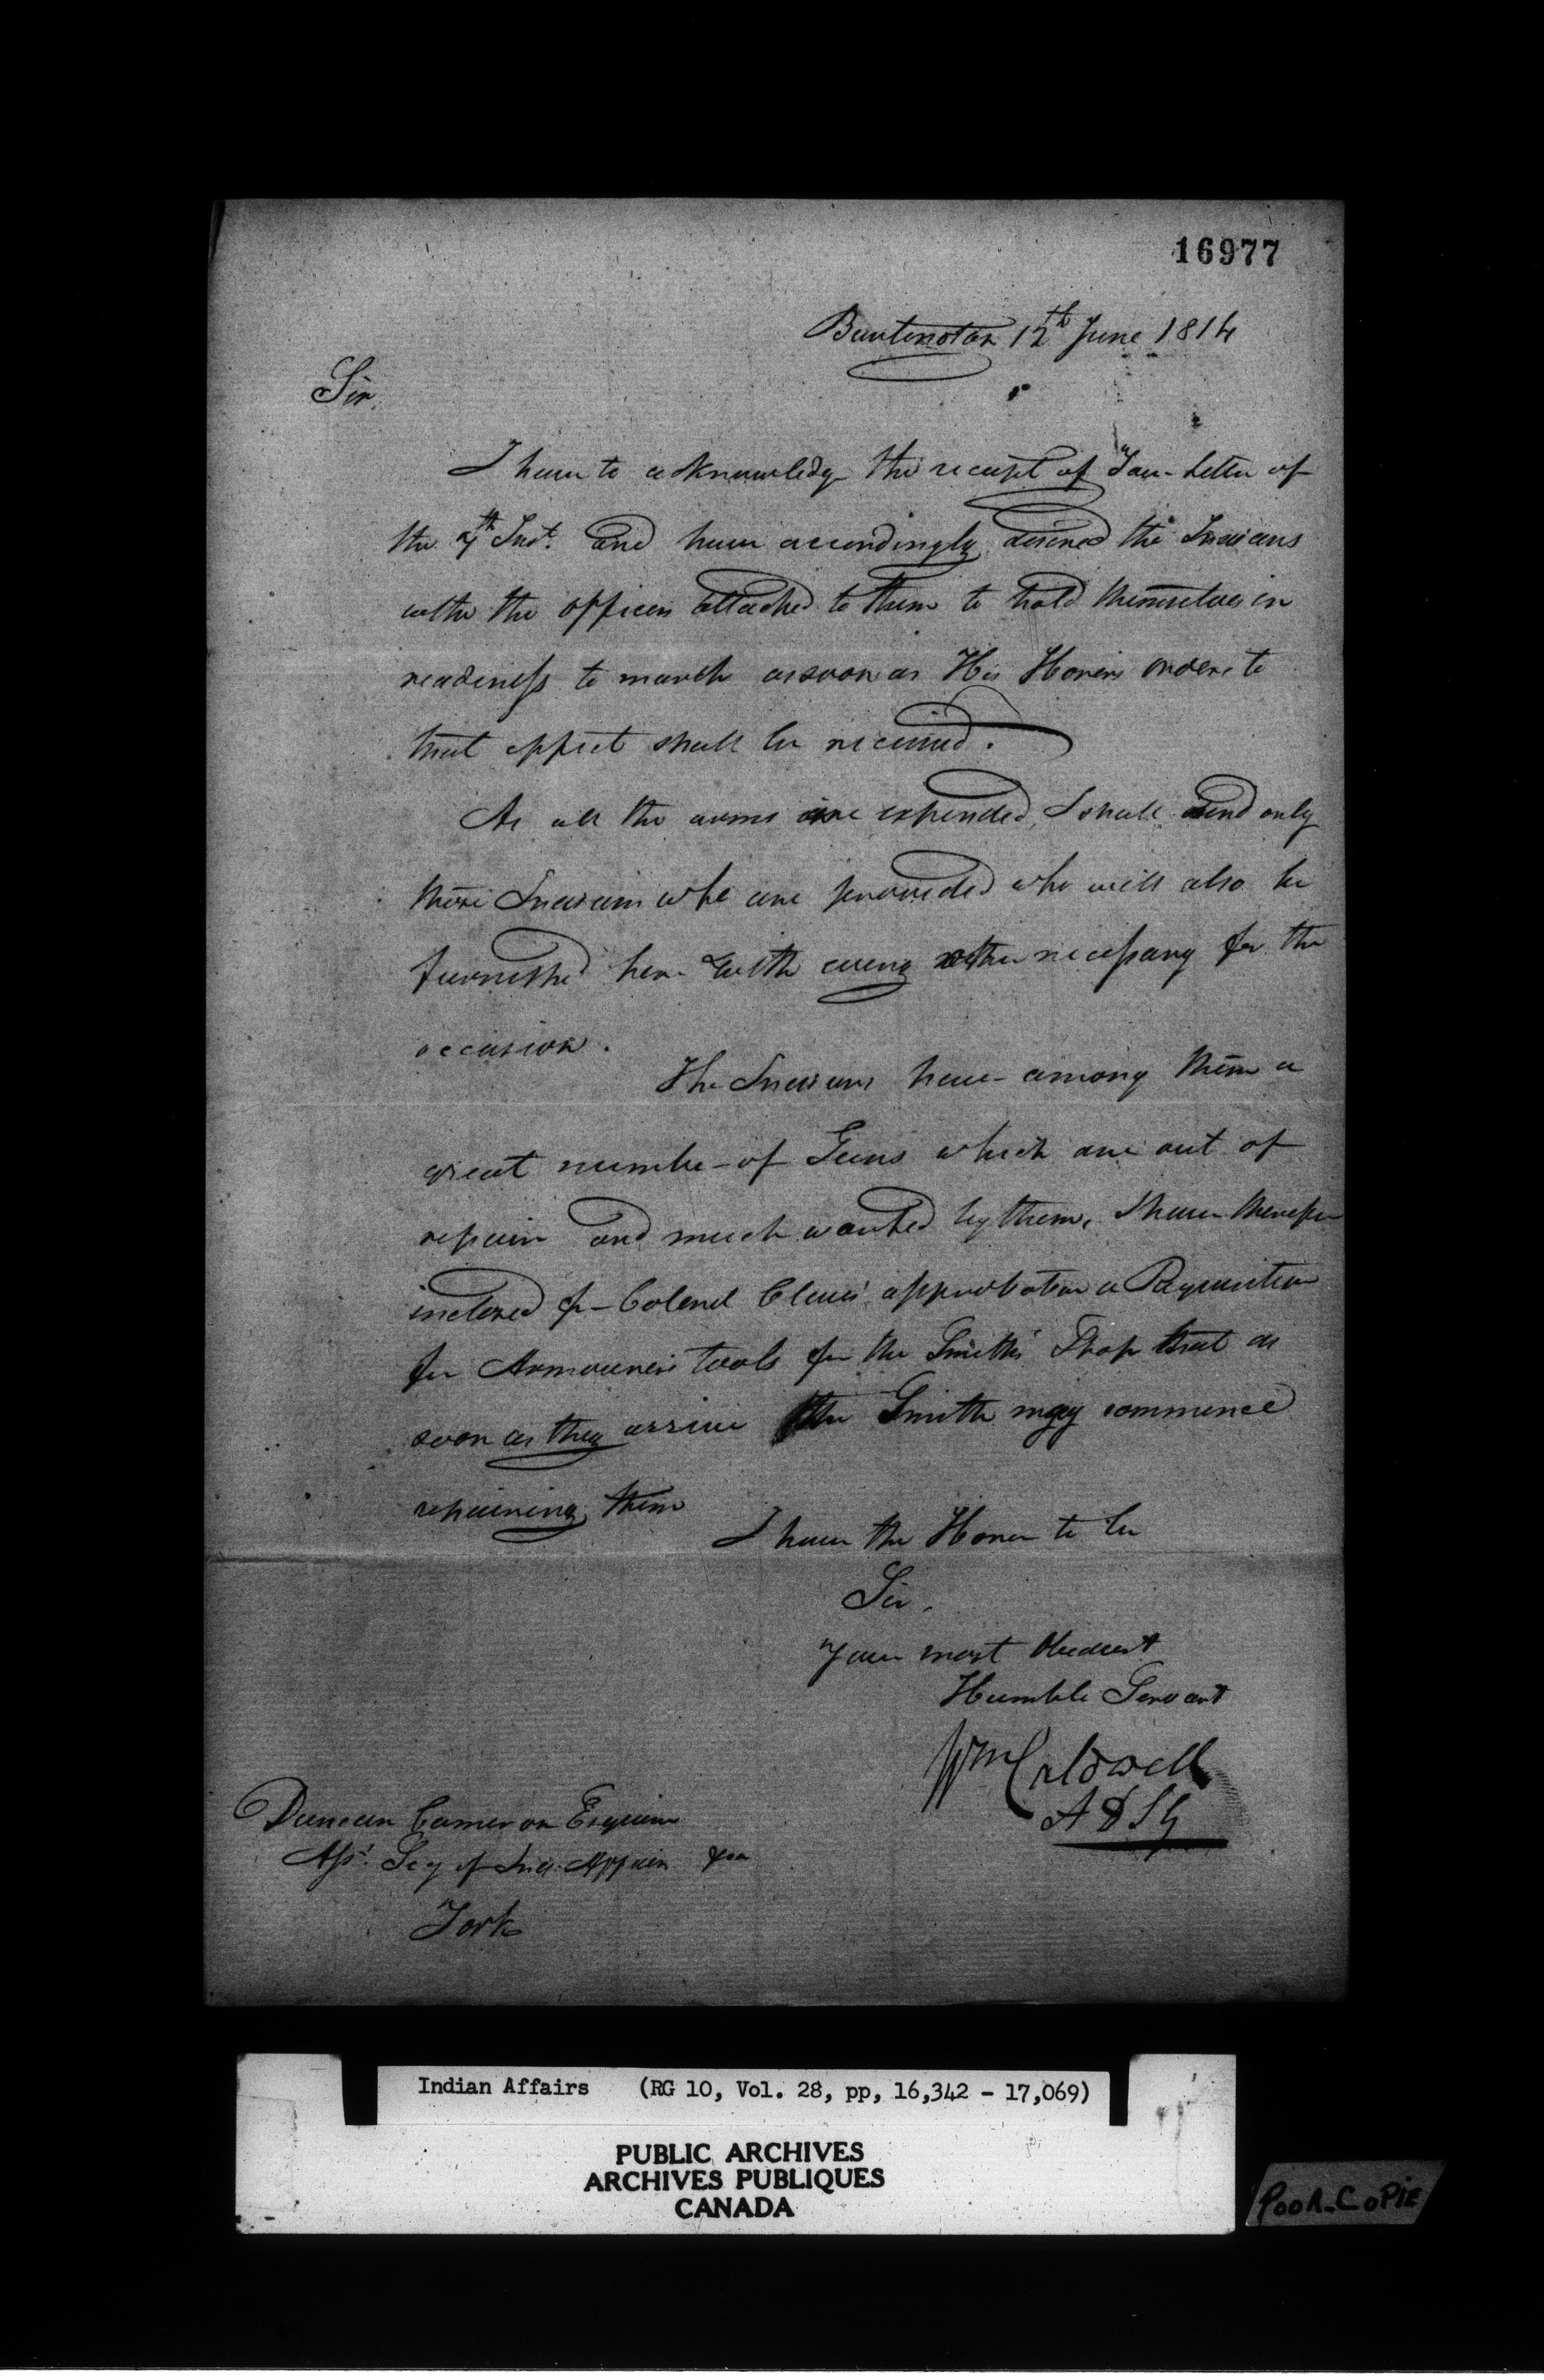 16977
Burlington 12th June 1814
Sir,
I have to acknowledge the receipt of Your Letter of
the 7th Inst. and have accordingly desired the Indians
with the officers attached to them to hold themselves in
readiness to march as soon as His Honors orders to
that effect shall be received.
As all the arms are expended, I shall send only
those Indians who are provided who will also be
furnished here with every other necessary for the
occasion.
The Indians have among them a
great number of Guns which are out of
repair and much wanted by them, I have therefore
inclosed for Colonel Claus' approbation a Requisition
for Armourers tools for the Smiths' Shop that as
soon as they arrive the Smith may commence
repairing them
I have the Honor to be
Sir,
Your most Obedient
Humble Servant
Wm Caldwell
Duncan Cameron Esquire
Asst. Secy of Ind. Affairs
York
Indian Affairs (RG 10, Vol. 28, pp, 16,342 - 17,069)
PUBLIC ARCHIVES
ARCHIVES PUBLIQUES
CANADA
POOR-COPIE